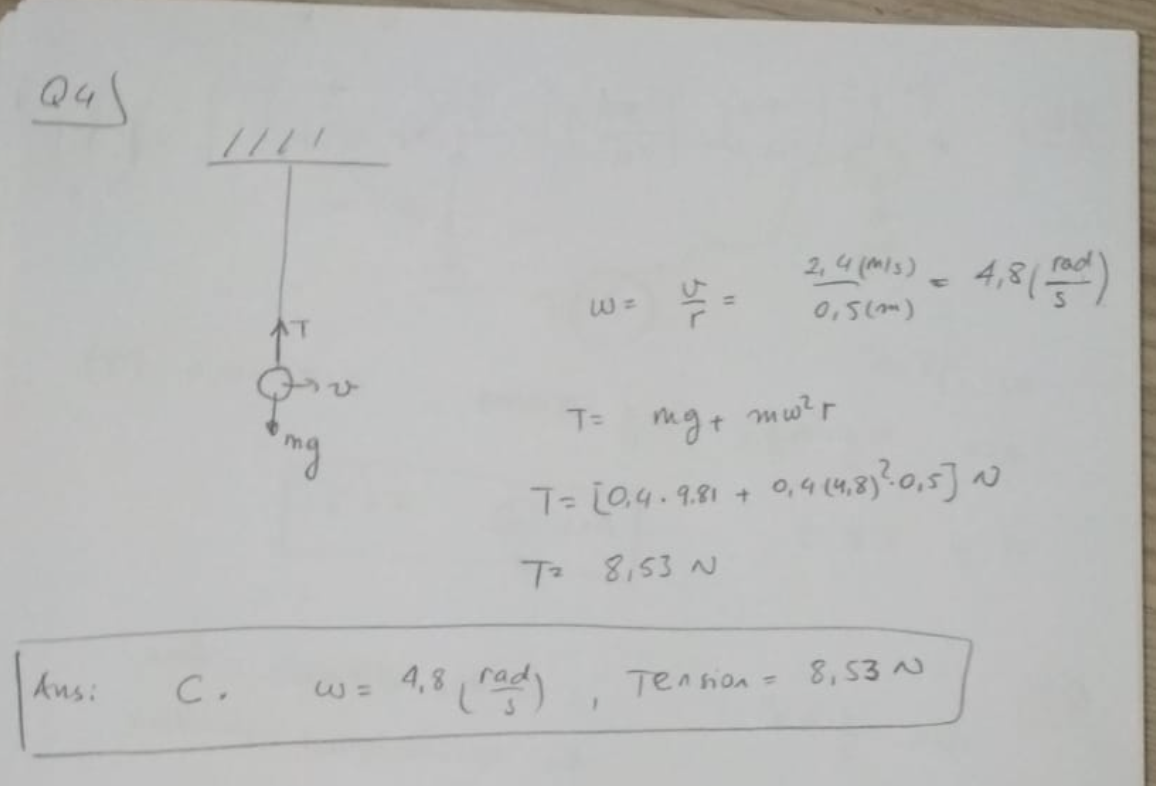 Q4
T
v
mg
ω = v/r = 2,4(m/s)/0,5(m) = 4,8(rad/s)
T= mg + mω²r
T= [0,4 . 9.81 + 0,4(4,8)².0,5] N
T= 8,53 N
Ans: C. ω = 4,8(rad/s), Tension = 8,53 N